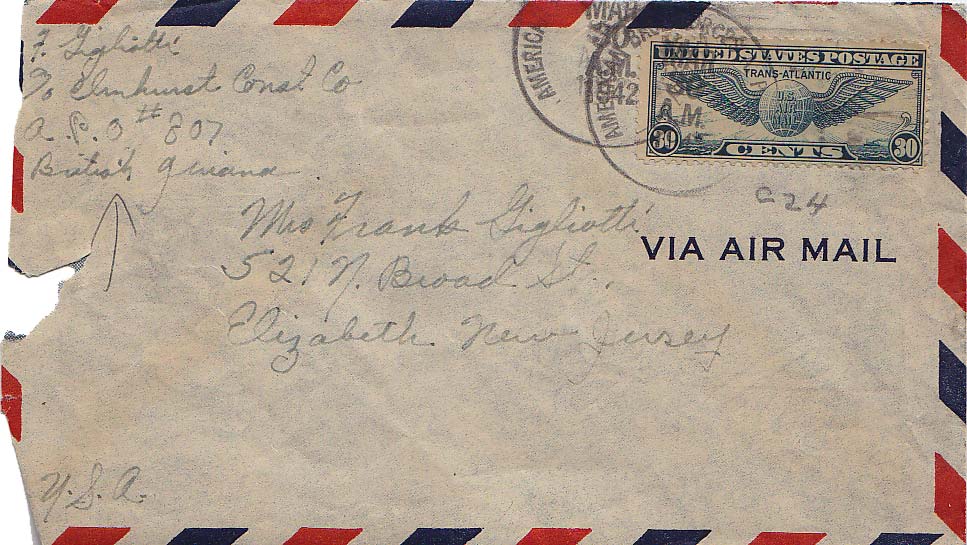 F. Gigliotti
% Elmhurst Const. Co
A.P.O # 807
British Guiana
AMERICAN
MAR
30
A.M.
1942
AMERICAN BASE FORCES
MAR
30
A.M.
UNITED STATES POSTAGE
TRANS-ATLANTIC
U.S.
AIR
MAIL
30 CENTS 30
C24
Mrs Frank Gigliotti
521 N. Broad St.
Elizabeth New Jersey
VIA AIR MAIL
U.S.A.